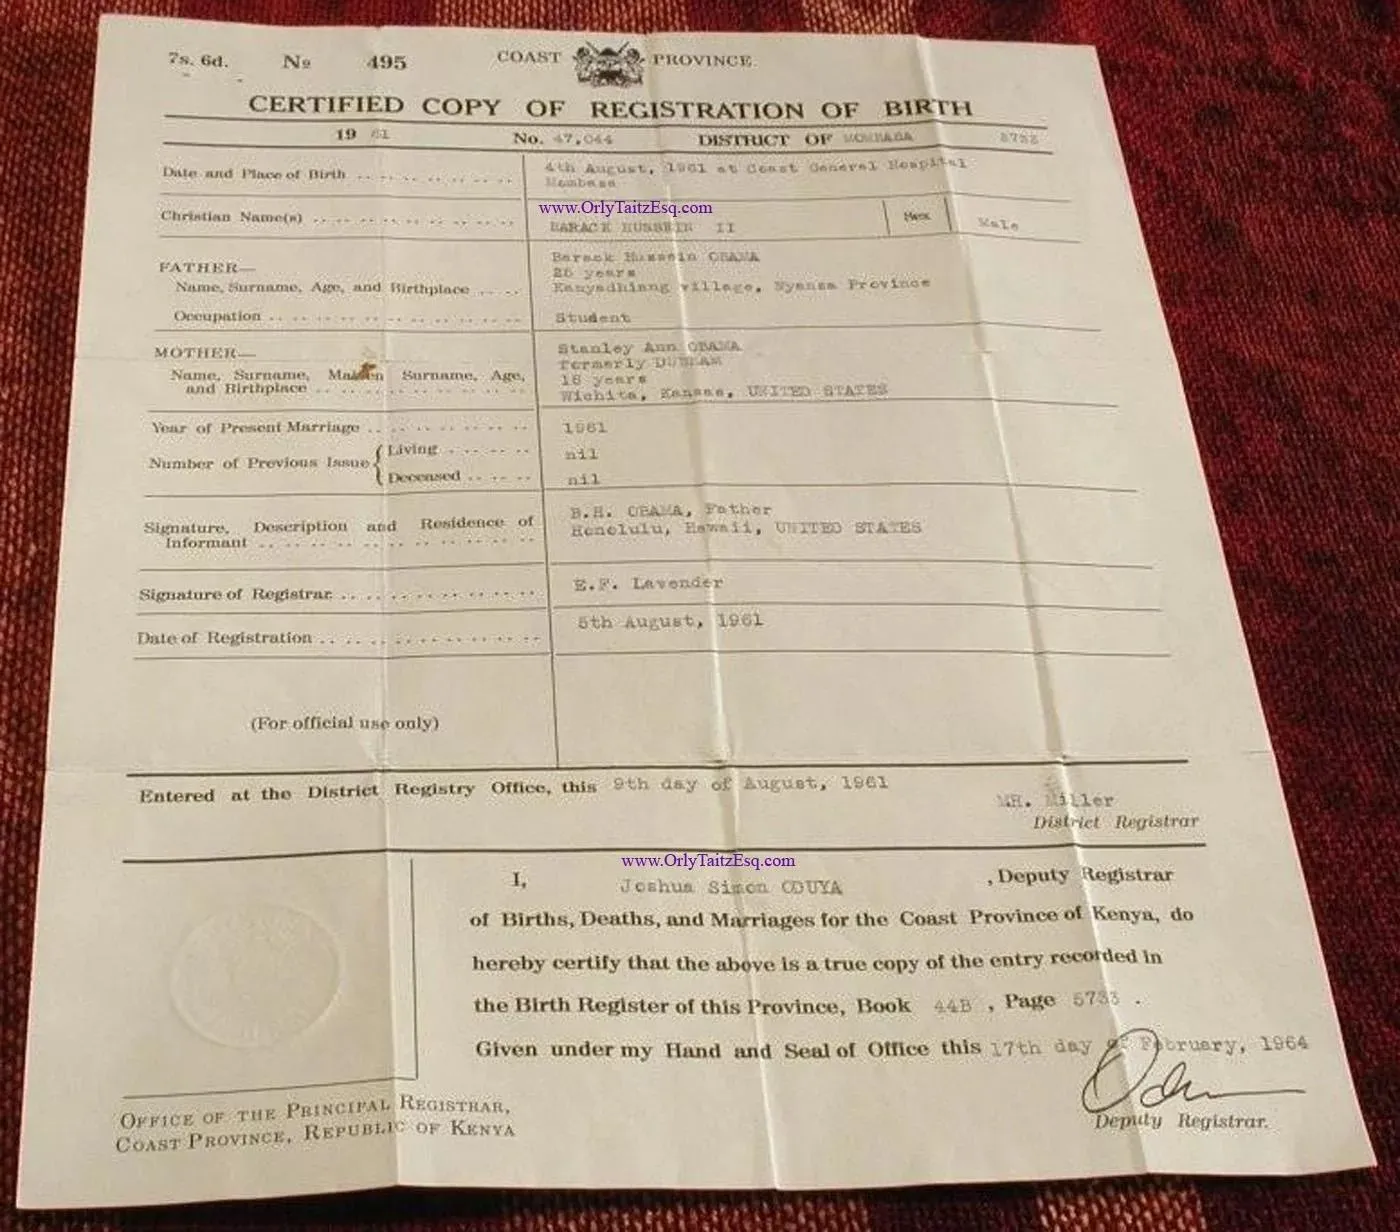 7s. 6d. No 495 COAST PROVINCE
CERTIFIED COPY OF REGISTRATION OF BIRTH
19 61 No. 47,044 DISTRICT OF MOMBASA 5733
Date and Place of Birth 4th August, 1961 at Coast General Hospital
Mombasa
www.OrlyTaitzEsq.com
Christian Name(s) BARACK HUSSEIN II Sex Male
FATHER—
Barack Hussein OBAMA
Name, Surname, Age, and Birthplace
years
Kanyadhiang village, Nyanza Province
Occupation Student
MOTHER—
Name, Surname, Maiden Surname, Age,
and Birthplace
Stanley Ann OBAMA
formerly DUNHAM
18 years
Wichita, Kansas, UNITED STATES
Year of Present Marriage 1961
Number of Previous Issue
Living nil
Deceased nil
Signature, Description and Residence of
Informant
B.H. OBAMA, Father
Honolulu, Hawaii, UNITED STATES
Signature of Registrar E.F. Lavender
Date of Registration 5th August, 1961
(For official use only)
Entered at the District Registry Office, this 9th day of August, 1961
MH. Miller
District Registrar
www.OrlyTaitzEsq.com
I, Joshua Simon ODUYA, Deputy Registrar
of Births, Deaths, and Marriages for the Coast Province of Kenya, do
hereby certify that the above is a true copy of the entry recorded in
the Birth Register of this Province, Book 44B, Page 5733.
Given under my Hand and Seal of Office this 17th day of February, 1964
Deputy Registrar.
OFFICE OF THE PRINCIPAL REGISTRAR,
COAST PROVINCE, REPUBLIC OF KENYA